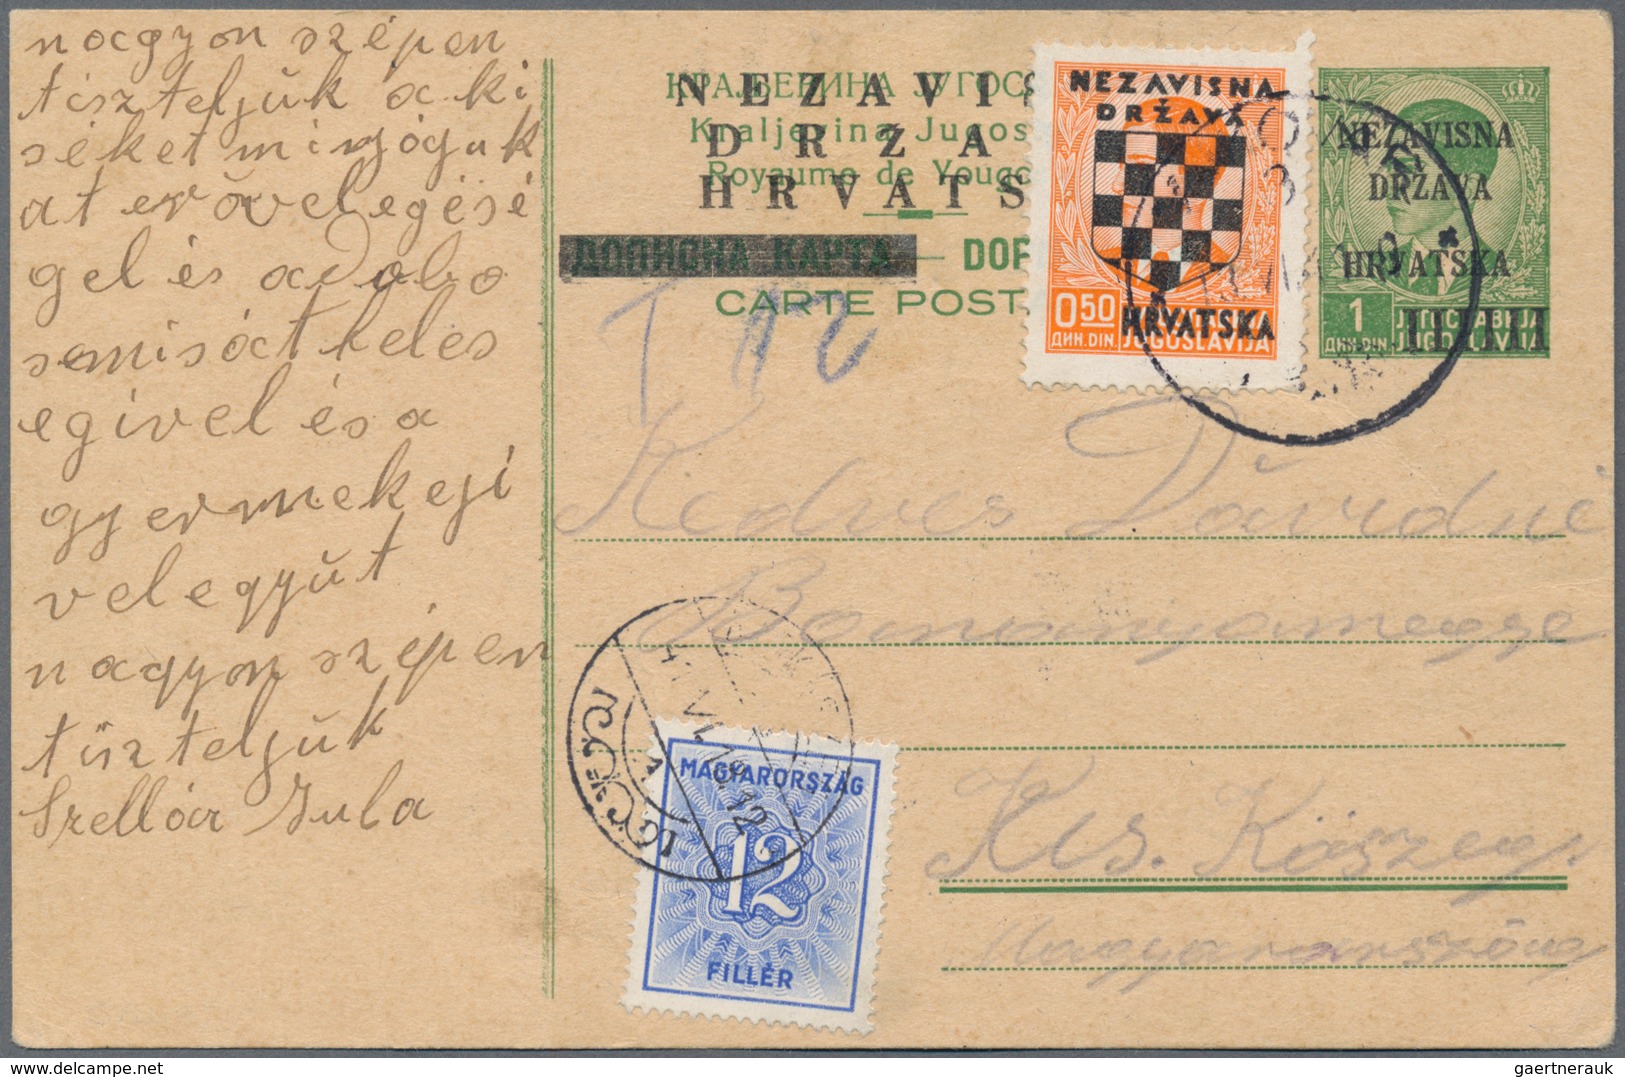 nagyon szépen
tiszteljük a ki
séket mi njóguk
at erövelegésé
gel és a Dobo
semisóct keles
egivel és a
gyermekeji
vel eggyüt
nagyon szépen
tiszteljük
Szellóir Jula
КРАЉЕВИНА ЈУГОС
Kraljevina Jugos
Royaume de Yougo
NEZAVIS
DRZA
HRVATS
ДОПИСНА КАРТА — DOP
CARTE POST
T 12
NEZAVISNA
DRŽAVA
HRVATSKA
0.50
ДИН. DIN
JUGOSLAVIJA
NEZAVISNA
DRŽAVA
HRVATSKA
1
ДИН. DIN
ЈУГОСЛАВИЈА
JUGOSLAVIJA
Kedves Dávidné
Baranyamegye
Kis. Kászeg
Magyarország
MAGYARORSZÁG
12
FILLÉR
gaertnerauk